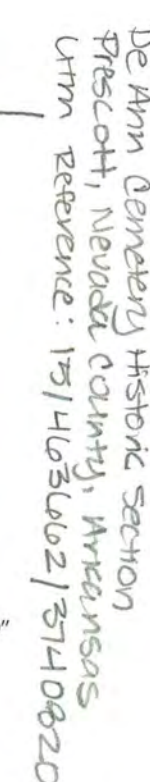 De Ann Cemetery Historic Section
Prescott, Nevada County, Arkansas
Utm Reference: 15/463662/3740820